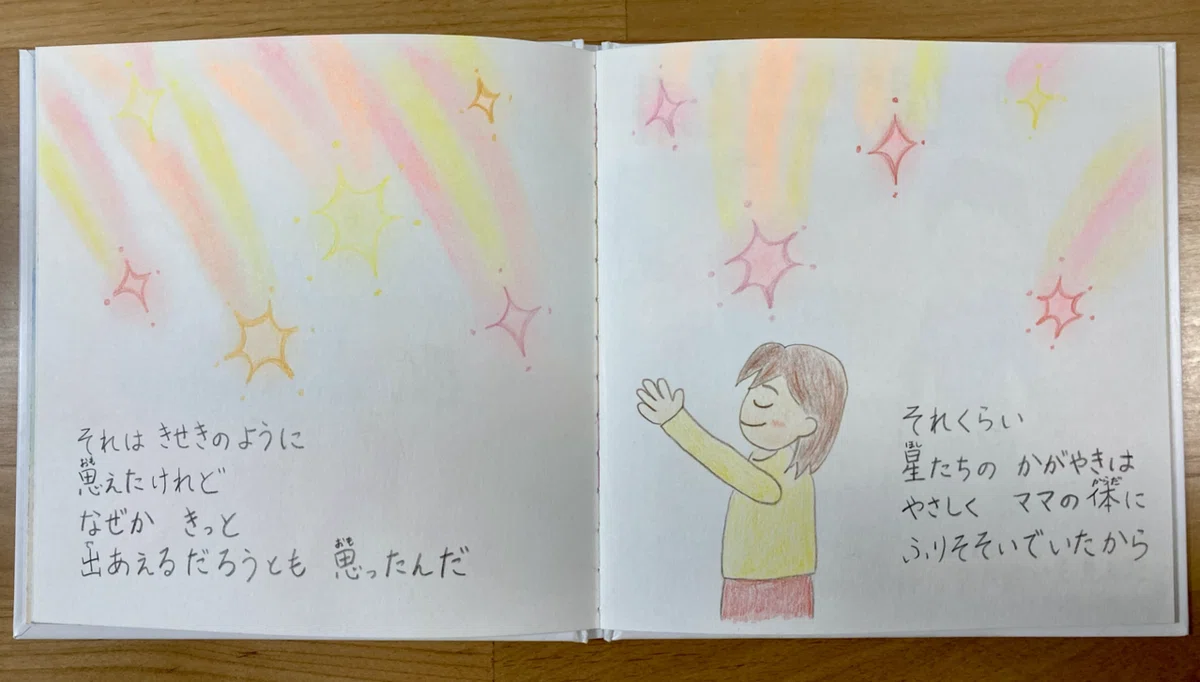 それは きせきのように
思えたけれど
なぜか きっと
出あえるだろうとも 思ったんだ
それくらい
星たちの かがやきは
やさしく ママの体に
ふりそそいでいたから